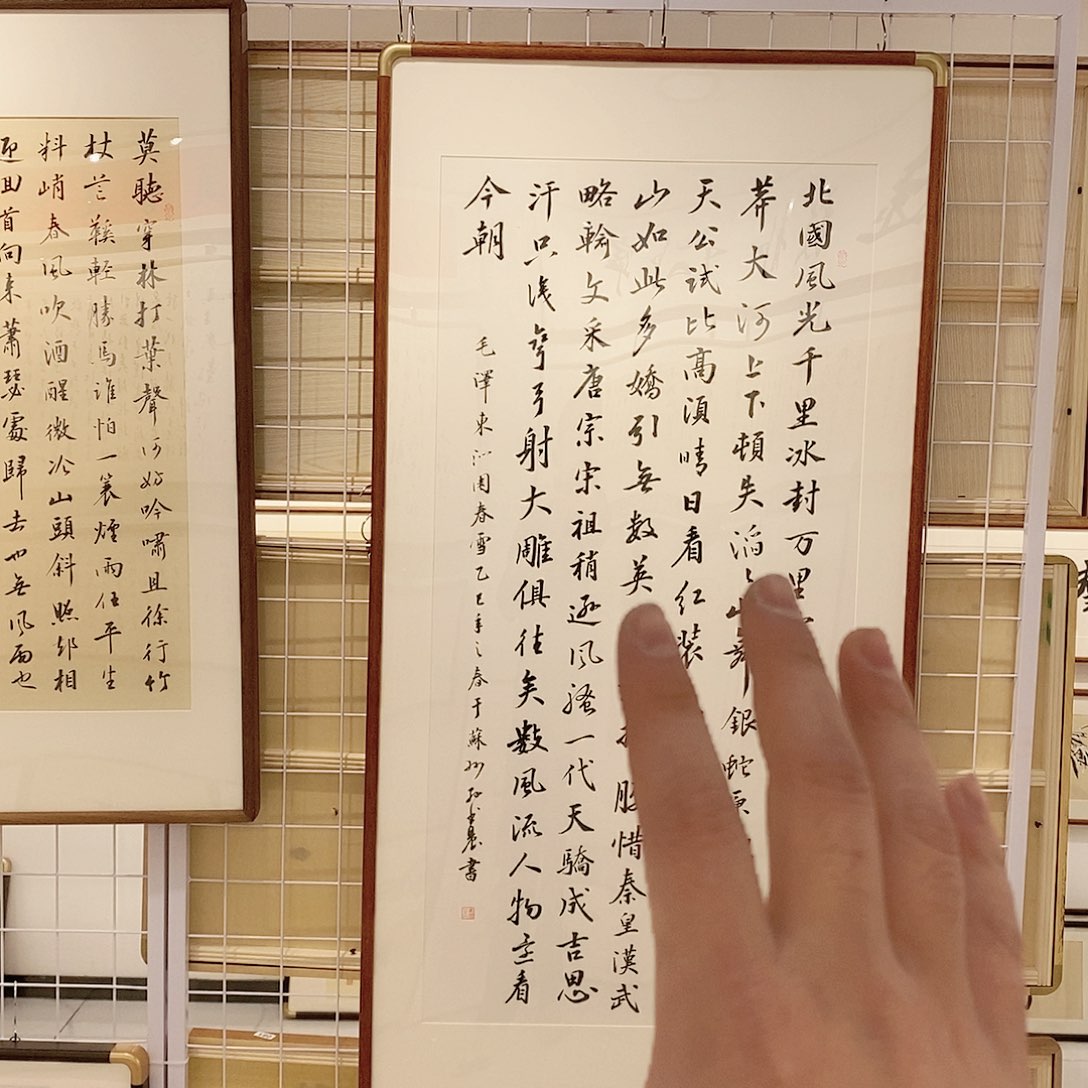 北國風光千里冰封万里
莽大河上下頓失滔山舞銀蛇原
天公試比高湏晴日看红装
山如此多嬌引無数英腰惜秦皇漢武
略輸文采唐宗宋祖稍遜風騷一代天驕成吉思
汗只识彎弓射大雕俱往矣數風流人物还看
今朝
毛澤東沁園春雪乙巳年之春于蘇州書
莫聽穿林打葉聲何妨吟嘯且徐行竹
杖芒鞵輕勝馬誰怕一蓑煙雨任平生
料峭春風吹酒醒微冷山頭斜照却相
迎回首向来蕭瑟處歸去也無風雨也